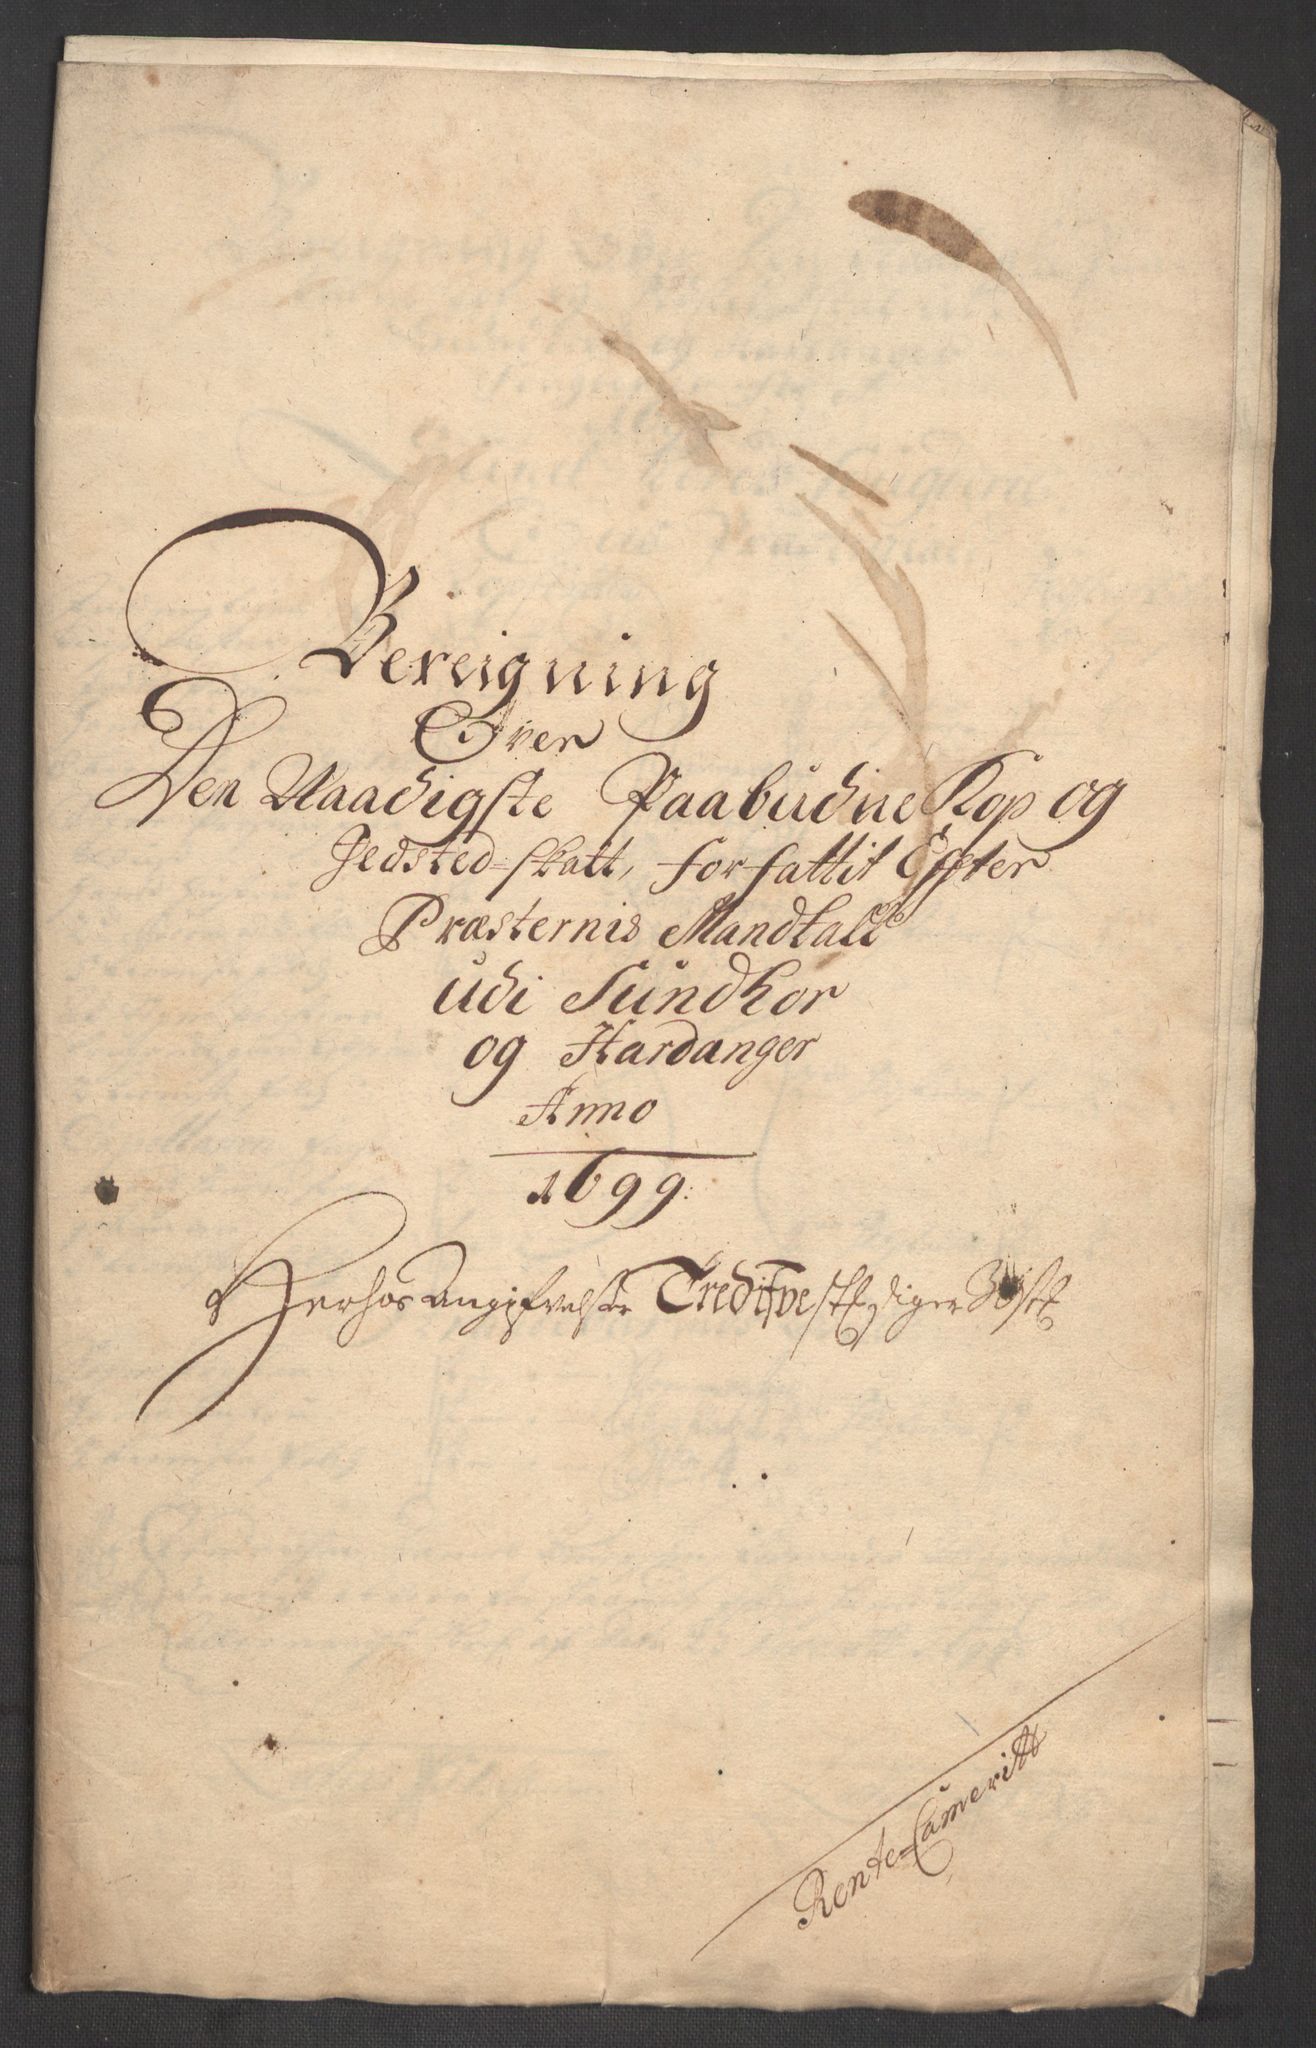 Bereigning
Over
Den Naadigste Paabudne Kop og
Ildsted-skatt, forfattit Effter
Præsternis Mandtall
udi Sundhor
og Hardanger
Anno
1699:
Herhos angifvelse
Rente-Cameritt